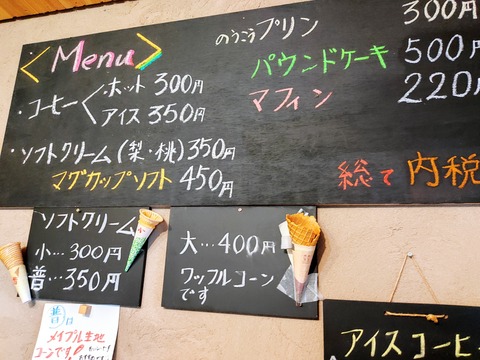 Menu
・コーヒー
ホット 300円
アイス 350円
・ソフトクリーム(梨・桃)350円
マグカップソフト 450円
のうこうプリン 300円
パウンドケーキ 500円
マフィン 220円
総て内税
ソフトクリーム
小…300円
普…350円
大…400円
ワッフルコーン
です
普は
メイプル生地
コーンです!
アイスコーヒー